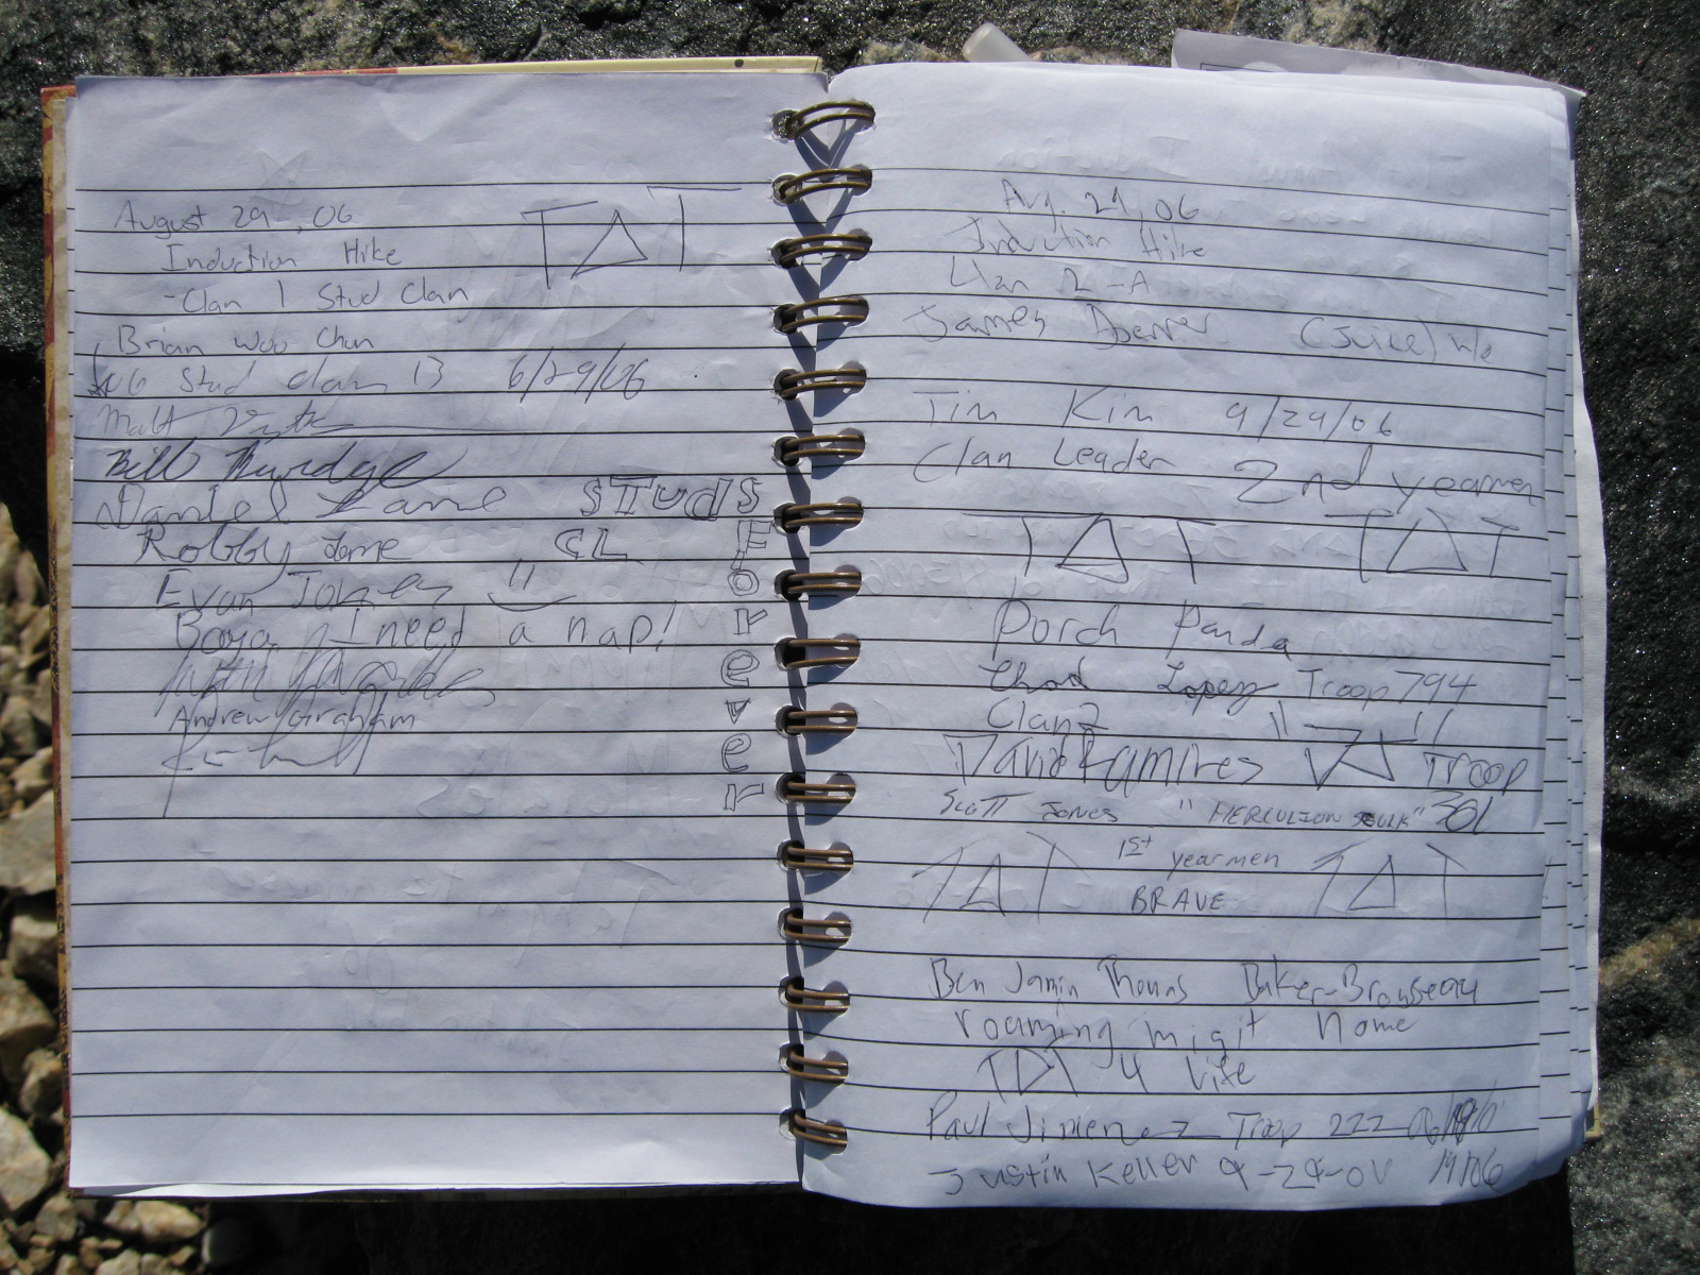 August 29, 06
TΔT
Induction Hike
-Clan 1 Stud Clan
Brian Woo Chun
Stud clan 13 6/29/06
Matt
Bill
Daniel Lane Studs
Robby Lane CL
Evan
I need a nap!
Andrew Graham
Forever
Aug. 29, 06
Induction Hike
Clan 2-A
James (Juice)
Tim Kim 9/29/06
Clan Leader 2nd yearmen
TΔT TΔT
Porch Panda
Chad Lopez Troop 794
Clan 2
David Ramires "DJ" Troop
301
Scott Jones "HERCULION
TΔT 1st yearmen TΔT
BRAVE
Ben Jamin Thomas Baker-Brousseau
roaming migit Nome
TΔT 4 Life
Paul Jimenez Troop 222
Justin Keller